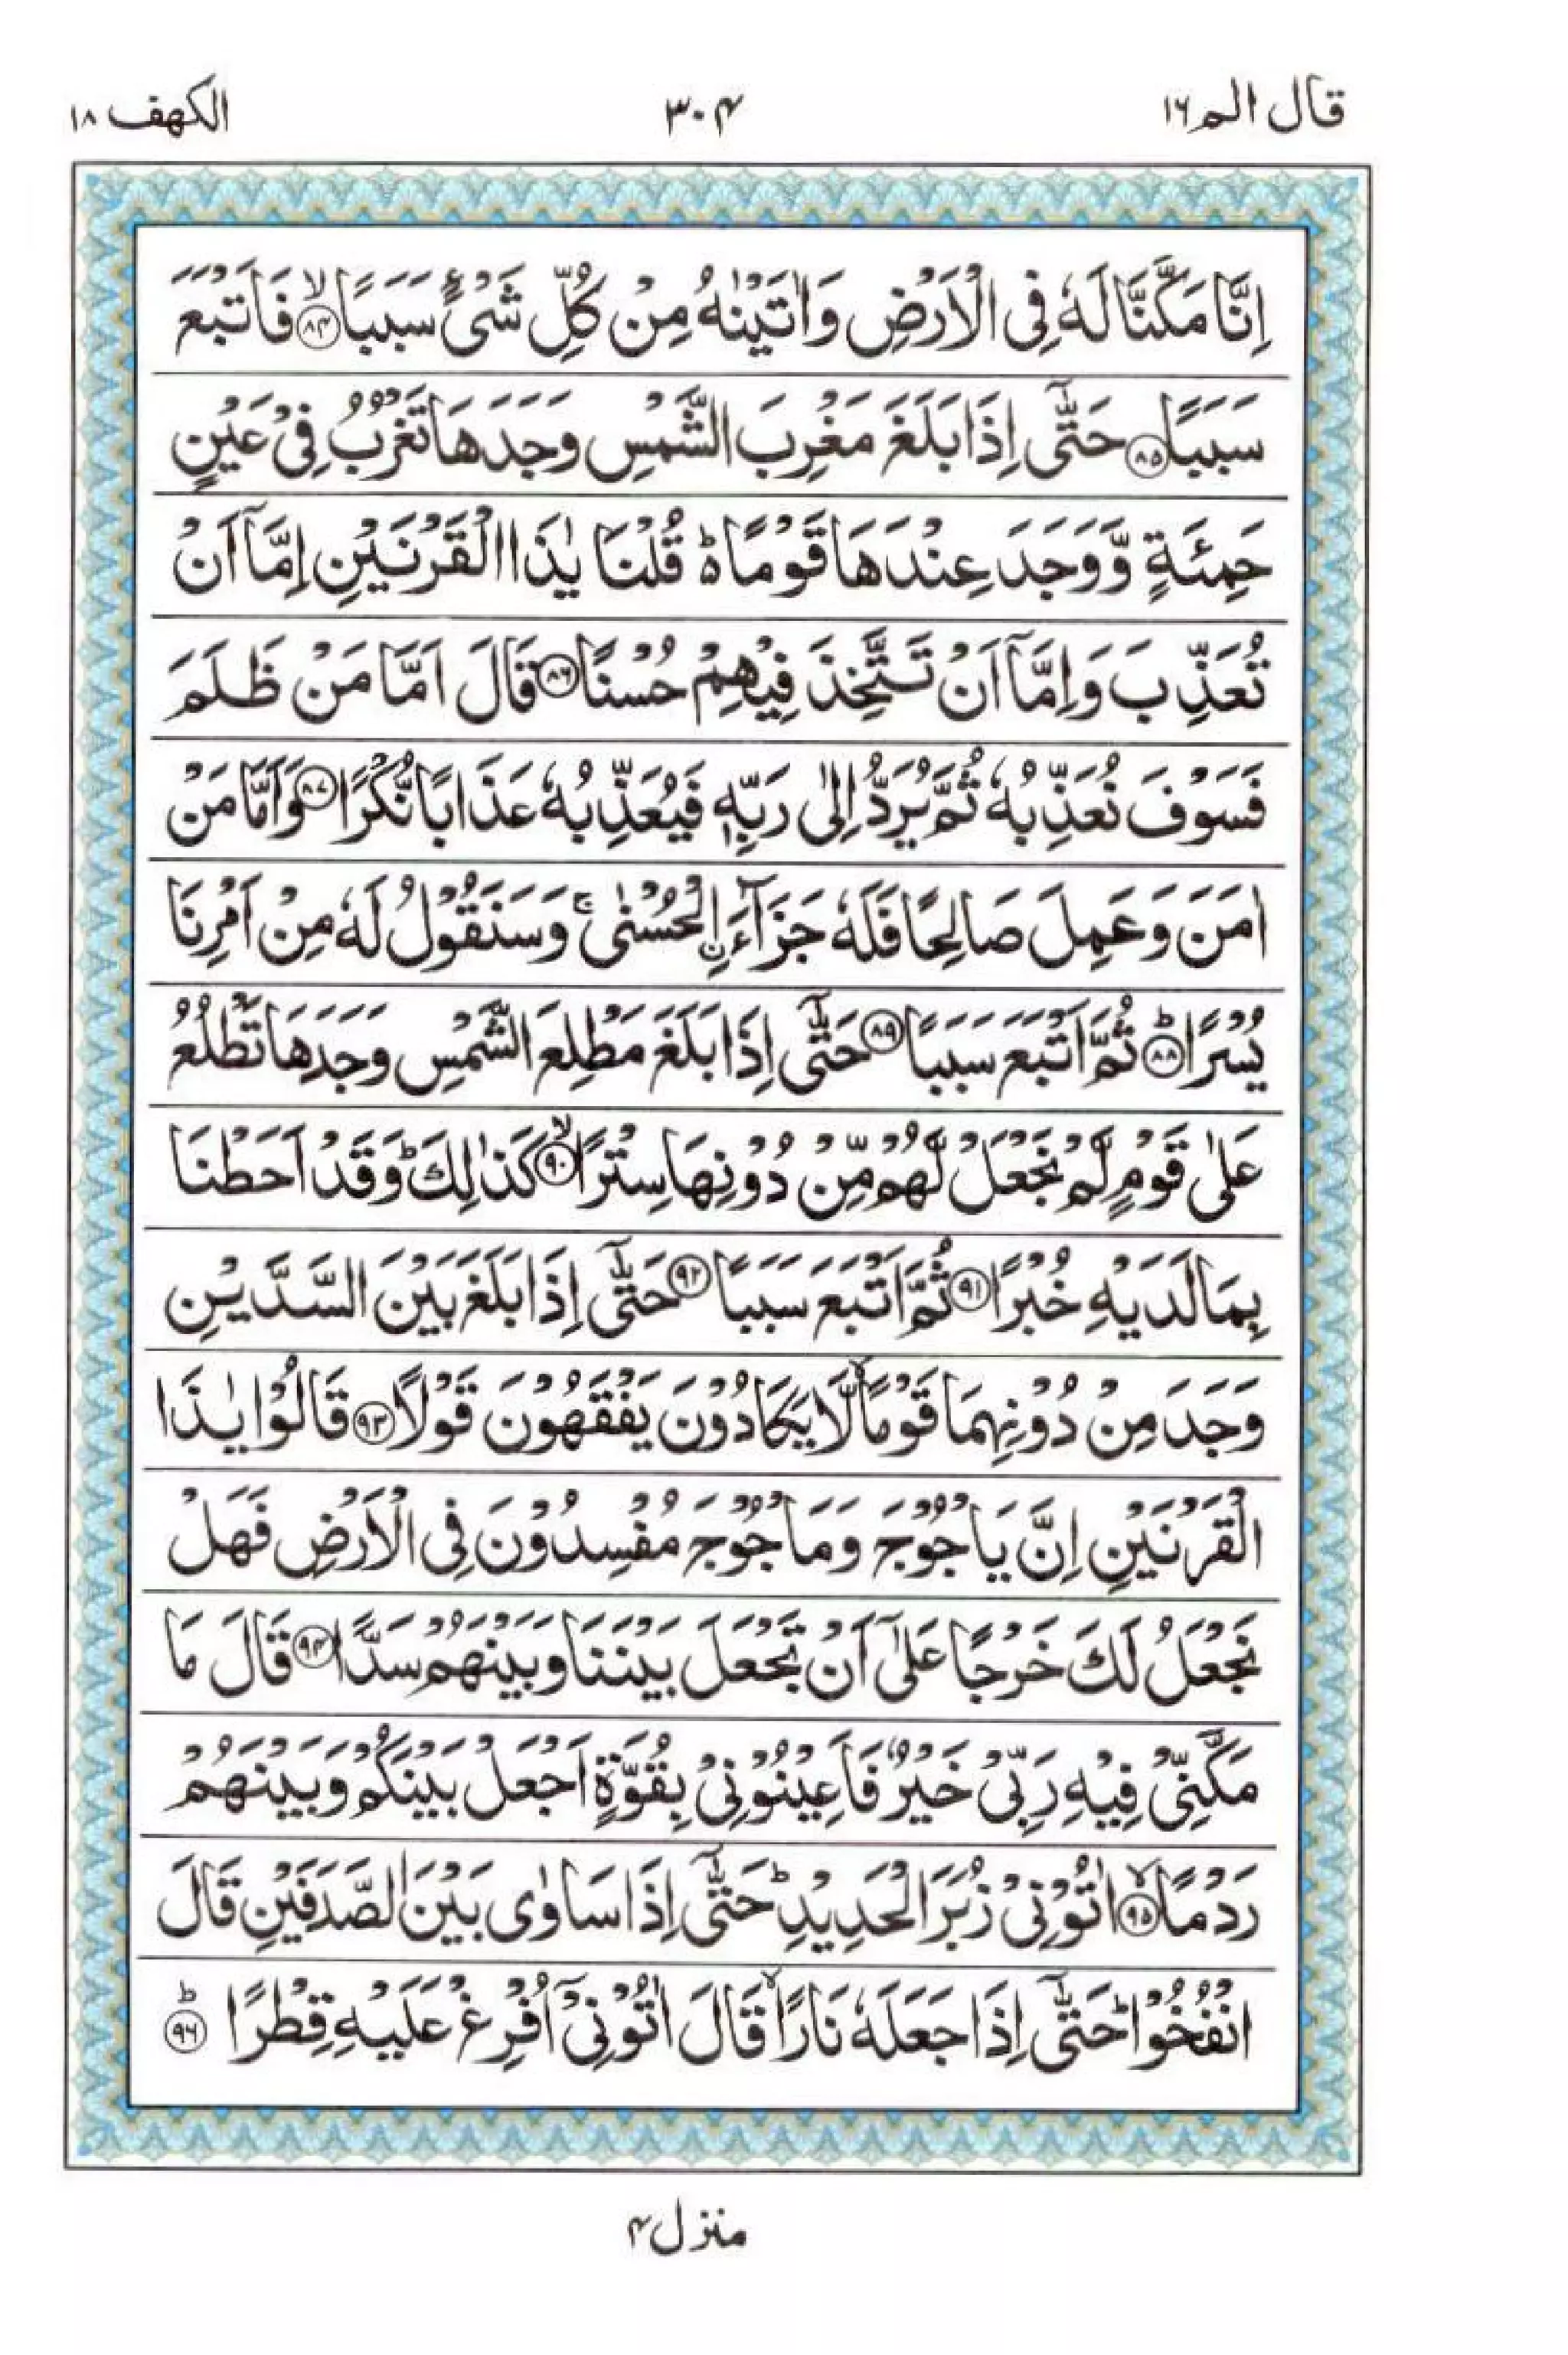 قال الم ١٦
٣٠۴
الكهف ١٨
اِنَّا مَكَّنَّا لَهٗ فِى الْاَرْضِ وَاٰتَيْنٰهُ مِنْ كُلِّ شَىْءٍ سَبَبًا ۙ‏﴿۸۴﴾ فَاَتْبَعَ
سَبَبًا ‏﴿۸۵﴾ حَتّٰٓى اِذَا بَلَغَ مَغْرِبَ الشَّمْسِ وَجَدَهَا تَغْرُبُ فِىْ عَيْنٍ
حَمِئَةٍ وَّ وَجَدَ عِنْدَهَا قَوْمًا ؕ قُلْنَا يٰذَا الْقَرْنَيْنِ اِمَّاۤ اَنْ
تُعَذِّبَ وَاِمَّاۤ اَنْ تَتَّخِذَ فِيْهِمْ حُسْنًا ‏﴿۸۶﴾ قَالَ اَمَّا مَنْ ظَلَمَ
فَسَوْفَ نُعَذِّبُهٗ ثُمَّ يُرَدُّ اِلٰى رَبِّهٖ فَيُعَذِّبُهٗ عَذَابًا نُّكْرًا ‏﴿۸۷﴾ وَاَمَّا مَنْ
اٰمَنَ وَعَمِلَ صَالِحًا فَلَهٗ جَزَآءَ ۨ الْحُسْنٰى ۚ وَسَنَقُوْلُ لَهٗ مِنْ اَمْرِنَا
يُسْرًا ؕ‏﴿۸۸﴾ ثُمَّ اَتْبَعَ سَبَبًا ‏﴿۸۹﴾ حَتّٰٓى اِذَا بَلَغَ مَطْلِعَ الشَّمْسِ وَجَدَهَا تَطْلُعُ
عَلٰى قَوْمٍ لَّمْ نَجْعَلْ لَّهُمْ مِّنْ دُوْنِهَا سِتْرًا ۙ‏﴿۹۰﴾ كَذٰلِكَ ؕ وَقَدْ اَحَطْنَا
بِمَا لَدَيْهِ خُبْرًا ‏﴿۹۱﴾ ثُمَّ اَتْبَعَ سَبَبًا ‏﴿۹۲﴾ حَتّٰٓى اِذَا بَلَغَ بَيْنَ السَّدَّيْنِ
وَجَدَ مِنْ دُوْنِهِمَا قَوْمًا ۙ لَّا يَكَادُوْنَ يَفْقَهُوْنَ قَوْلًا ‏﴿۹۳﴾ قَالُوْا يٰذَا
الْقَرْنَيْنِ اِنَّ يَاْجُوْجَ وَمَاْجُوْجَ مُفْسِدُوْنَ فِى الْاَرْضِ فَهَلْ
نَجْعَلُ لَكَ خَرْجًا عَلٰٓى اَنْ تَجْعَلَ بَيْنَنَا وَبَيْنَهُمْ سَدًّا ‏﴿۹۴﴾ قَالَ مَا
مَكَّنِّىْ فِيْهِ رَبِّىْ خَيْرٌ فَاَعِيْنُوْنِىْ بِقُوَّةٍ اَجْعَلْ بَيْنَكُمْ وَبَيْنَهُمْ
رَدْمًا ۙ‏﴿۹۵﴾ اٰتُوْنِىْ زُبَرَ الْحَدِيْدِ ؕ حَتّٰٓى اِذَا سَاوٰى بَيْنَ الصَّدَفَيْنِ قَالَ
انْفُخُوْا ؕ حَتّٰٓى اِذَا جَعَلَهٗ نَارًا ۙ قَالَ اٰتُوْنِىْۤ اُفْرِغْ عَلَيْهِ قِطْرًا ؕ‏﴿۹۶﴾
منزل ۴